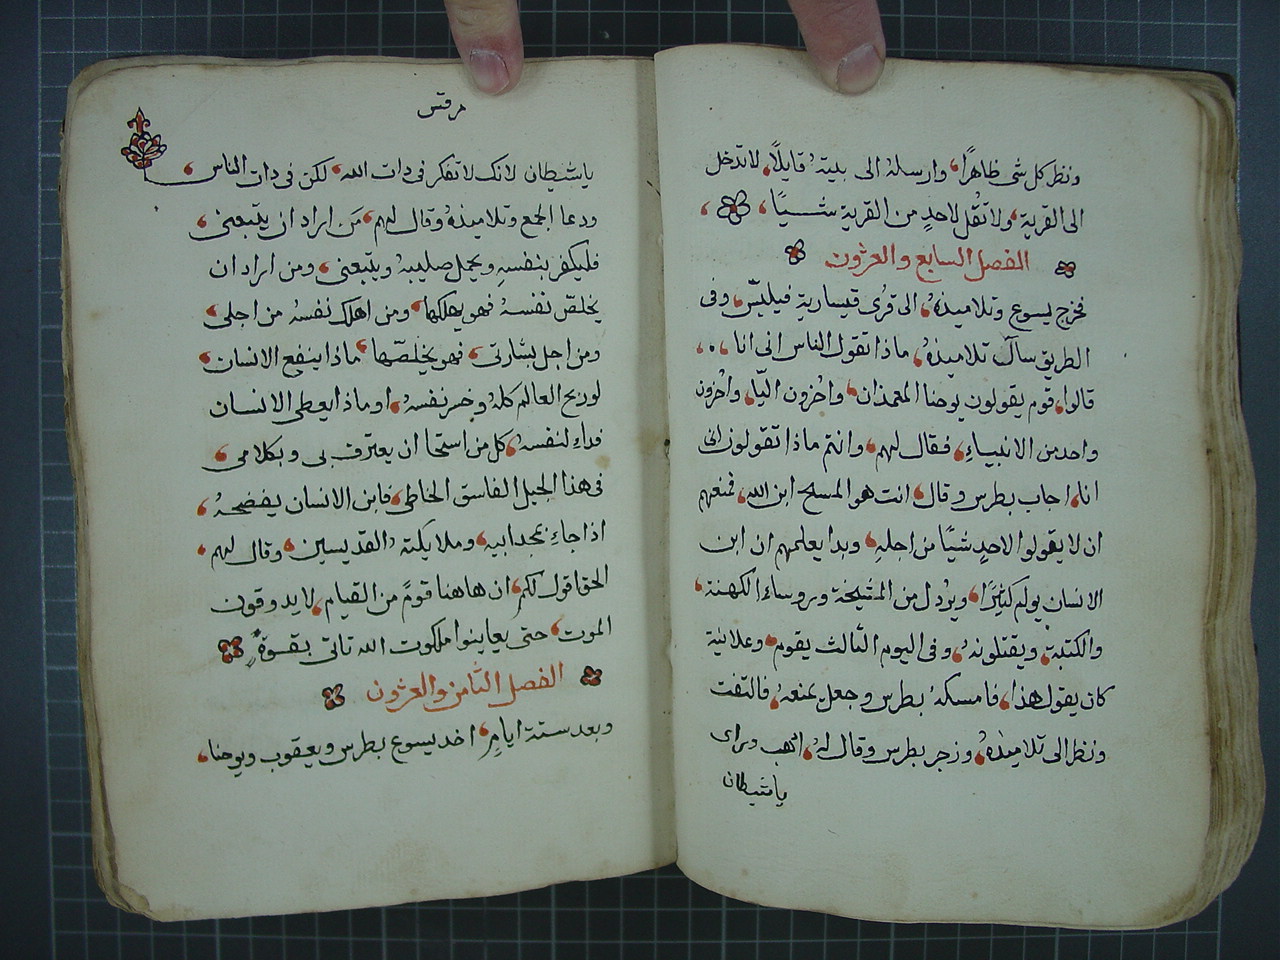 ونظر كل شى ظاهرًا، وارسله الى بيته قايلًا، لا تدخل
الى القرية، ولا تقل لاحدٍ من القرية شـــيـًا،
الفصل السابع والعشرون
فخرج يسوع وتلاميذه، الى قرى قيسارية فيلبس، وفى
الطريق سال تلاميذه، ماذا تقول الناس انى انا،،
قالوا، قوم يقولون يوحنا المعمدان، واخرون اليّا، واخرون
واحد من الانبياءِ، فقال لهم، وانتم ماذا تقولون انى
انا، اجاب بطرس وقال، انت هو المسيح ابن الله، فمنعهم
ان لا يقولوا لاحدٍ شيًا من اجلهِ، وبدا يعلمهم ان ابن
الانسان يولم كثيرًا، ويُرذل من المشيخة وروساء الكهنة،
والكتبة، ويقتلونه، وفى اليوم الثالث يقوم، وعلانية
كان يقول هذا، فامسكه بطرس وجعل يمنعه، فالتفت
ونظر الى تلاميذه، وزجر بطرس وقال له، اذهب وراى
ياشيطان
مرقس
ياشيطان لانك لا تفكر فى ذات الله، لكن فى ذات الناس،
ودعا الجمع وتلاميذه وقال لهم، مَن اراد ان يتبعنى،
فليكفر بنفسهِ ويحمل صليبه ويتبعنى، ومن اراد ان
يخلص نفسه فهو يهلكها، ومن اهلك نفسه من اجلى،
ومن اجل بشارتى، فهو يخلصها، ماذا ينفع الانسان،
لو ربح العالم كله وخسر نفسه، او ماذا يعطى الانسان
فداءً لنفسه، كل من استحا ان يعترف بى وبكلامى،
فى هذا الجيل الفاسق الخاطى، فابن الانسان يفضحه،
اذا جاءِ بمجد ابيه، وملايكته القديسين، وقال لهم،
الحق اقول لكم، ان هاهنا قومٌ من القيام، لا يدوقون
الموت، حتى يعاينوا ملكوت الله تاتى بقـــوةٍ
الفصل الثامن والعشرون
وبعد ستة ايامِ، اخد يسوع بطرس ويعقوب ويوحنا،